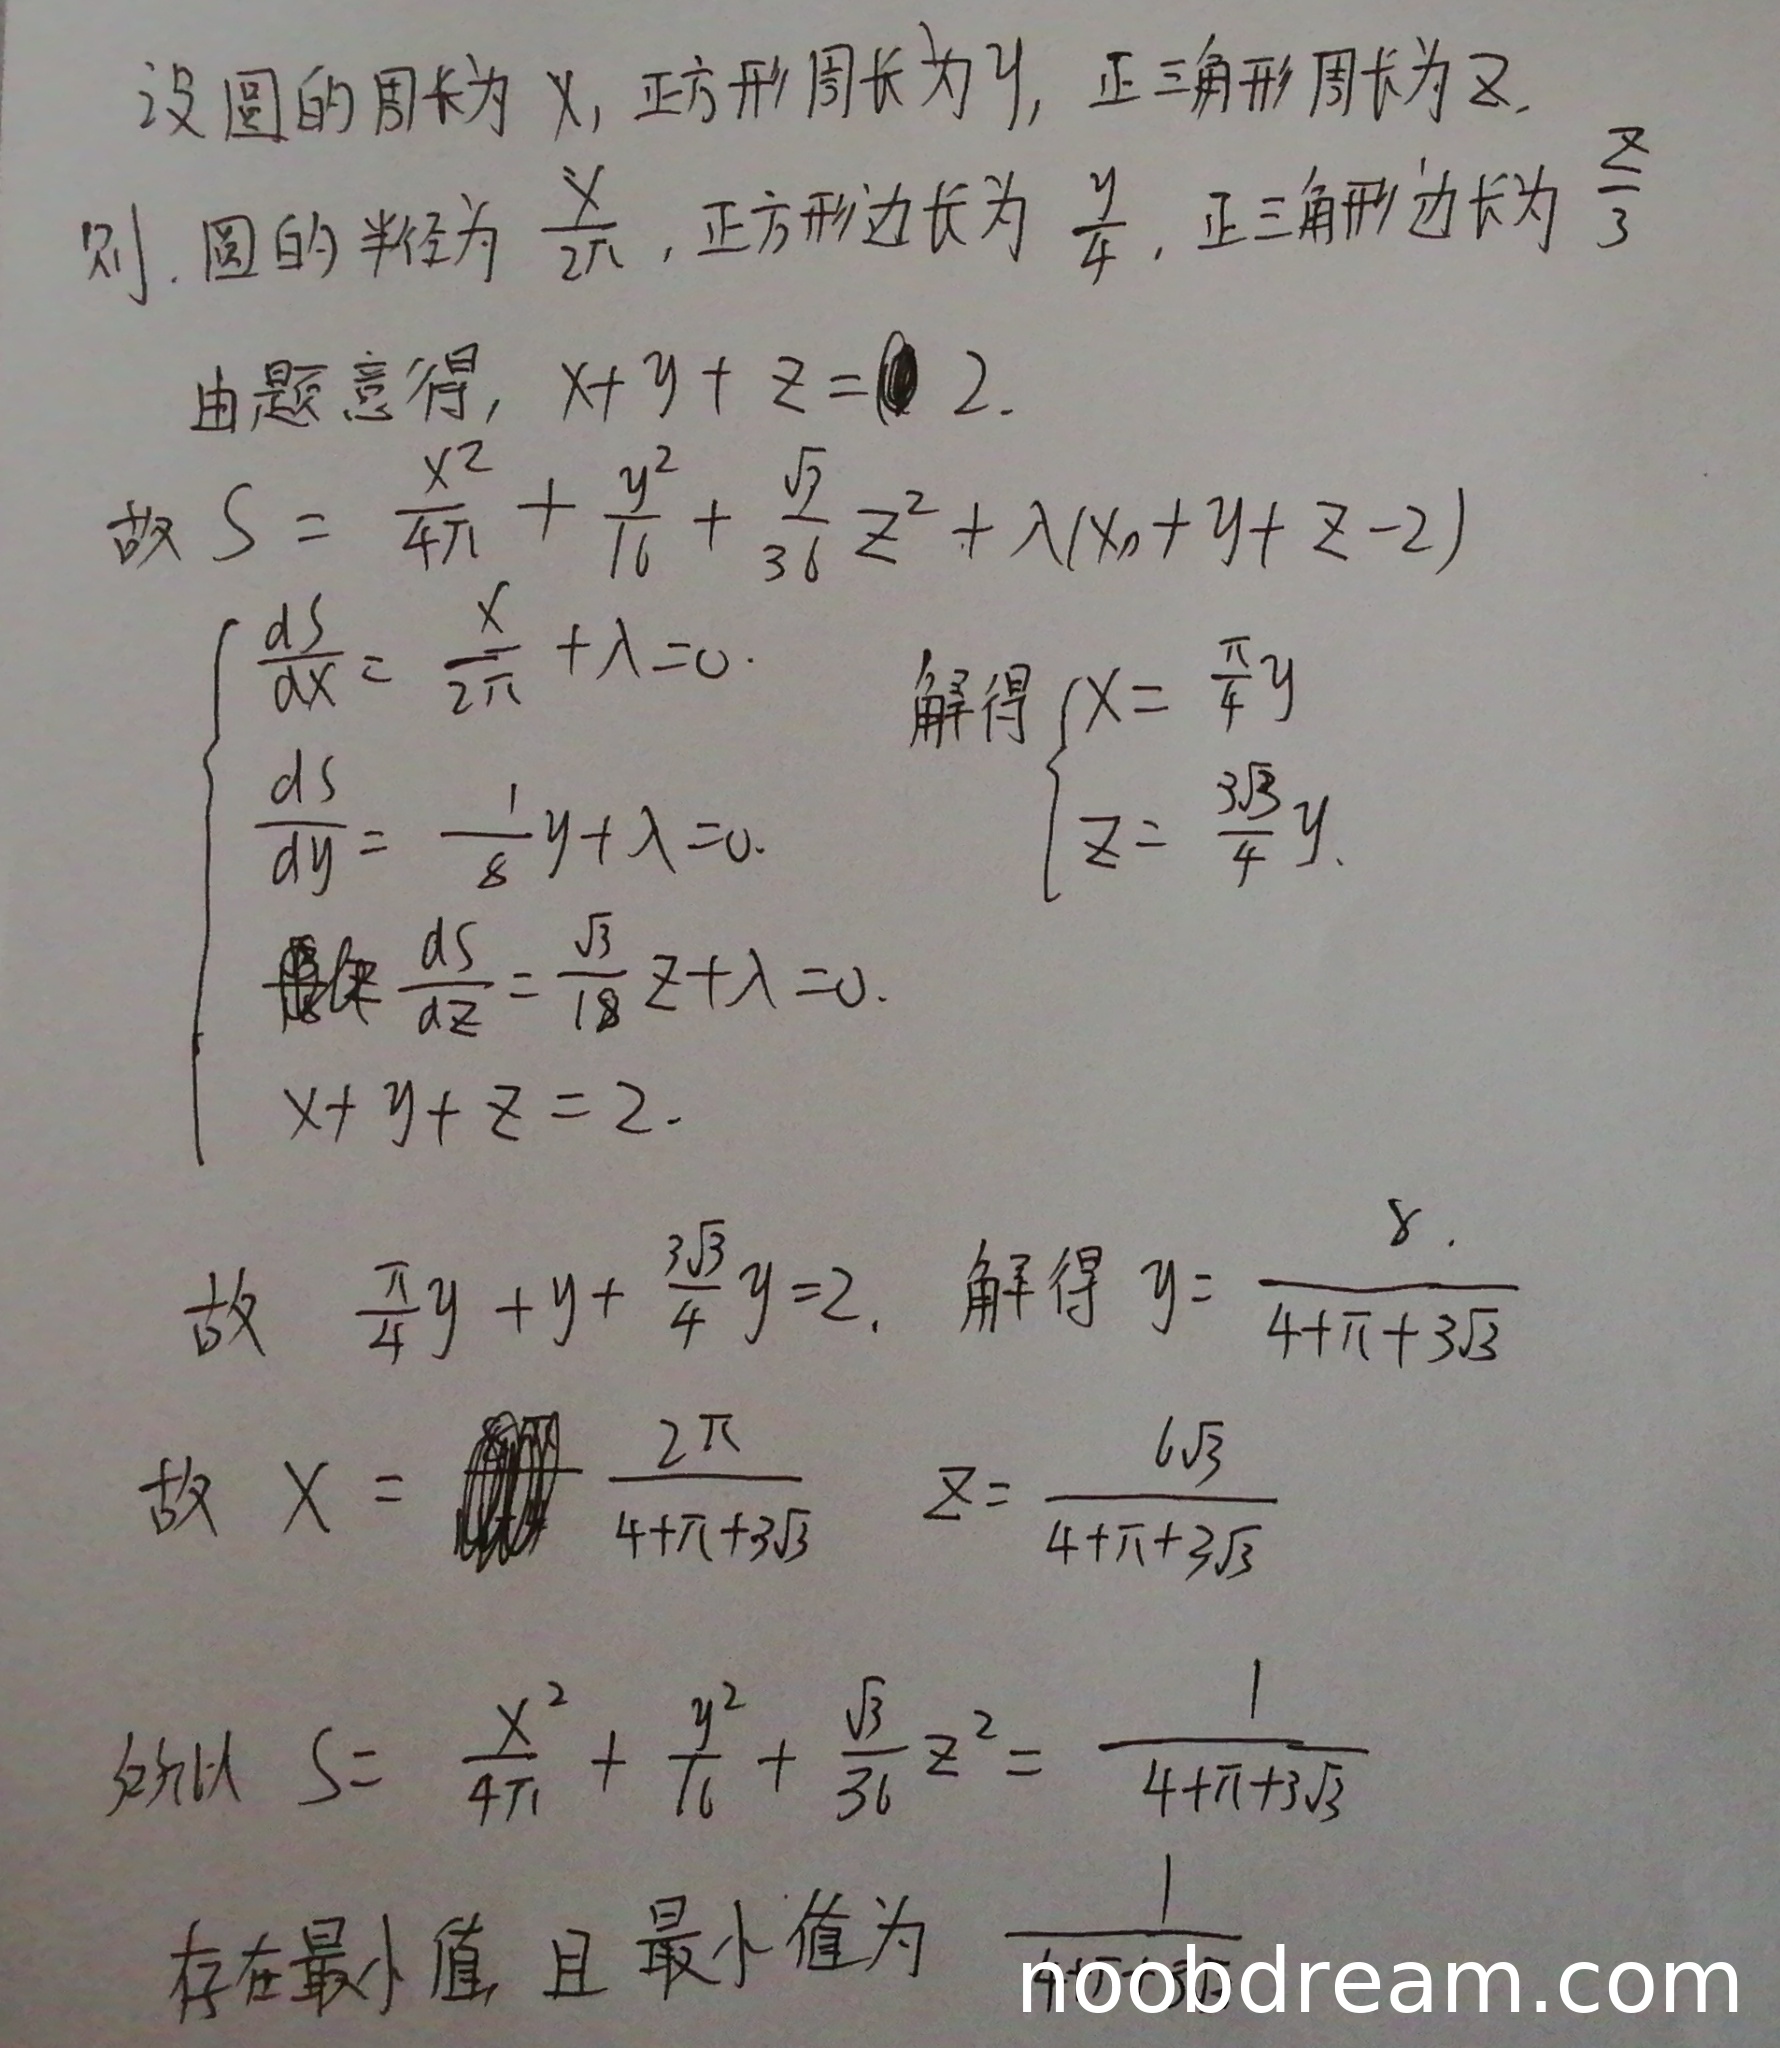 设圆的周长为 x, 正方形周长为 y, 正三角形周长为 z.
则. 圆的半径为 x/2π , 正方形边长为 y/4 , 正三角形边长为 z/3
由题意得, x+y+z= 2.
故 S = x²/4π + y²/16 + √3/36 z² + λ(x+y+z-2)
dS/dx = x/2π + λ=0. 解得 { x= π/4 y
dS/dy = 1/8 y+λ=0. z= 3√3/4 y.
dS/dz = √3/18 z+λ=0.
x+y+z=2.
故 π/4 y +y+ 3√3/4 y=2. 解得 y= 8/(4+π+3√3)
故 x = 2π/(4+π+3√3) z= 6√3/(4+π+3√3)
所以 S= x²/4π + y²/16 + √3/36 z² = 1/(4+π+3√3)
存在最小值, 且最小值为 1/(4+π+3√3)
noobdream.com